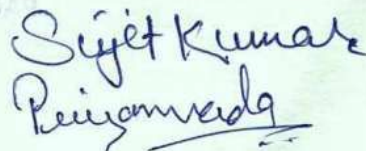 Sujet Kumar
Priyamvada